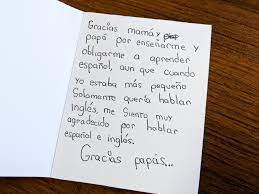 Gracias mamá y
papá por enseñarme y
obligarme a aprender
español, aun que cuando
yo estaba más pequeño
Solamente quería hablar
inglés, me Siento muy
agradecido por hablar
español e inglés.
Gracias papás...